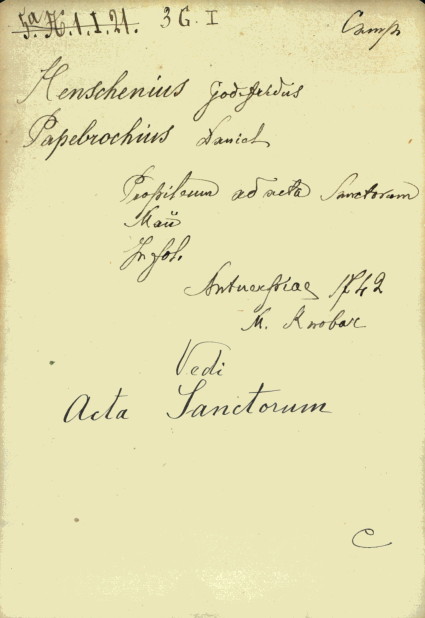 5a.H.1.I.21. 3 G. I Camp
Henschenius Godefridus
Papebrochius Daniel
Propileum ad acta Sanctorum
Maii
In fol.
Antuerpiae 1742
M. Knobar
Vedi
Acta Sanctorum
C